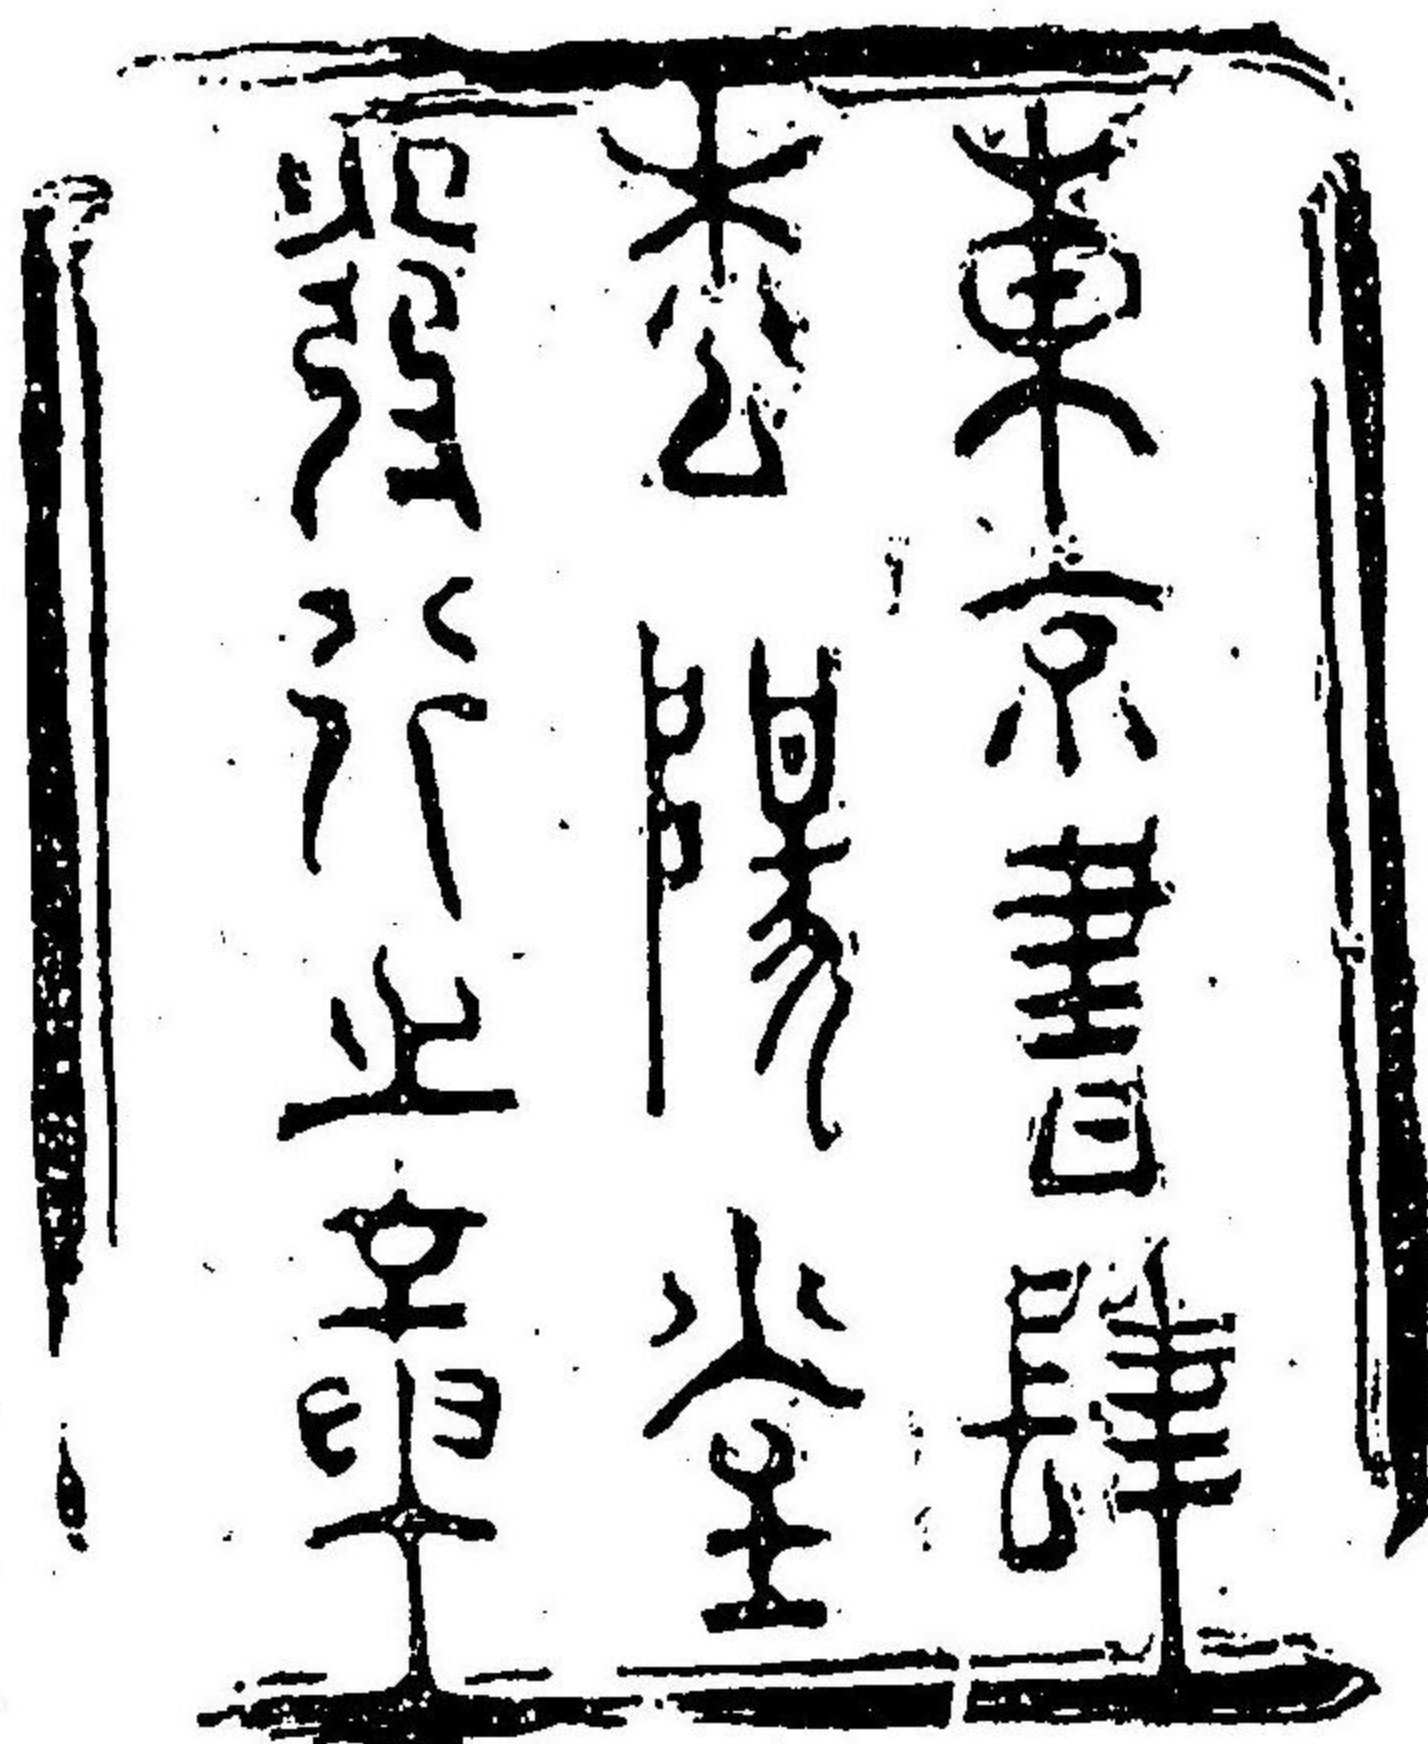 東京書肆
松陽堂
發行之章